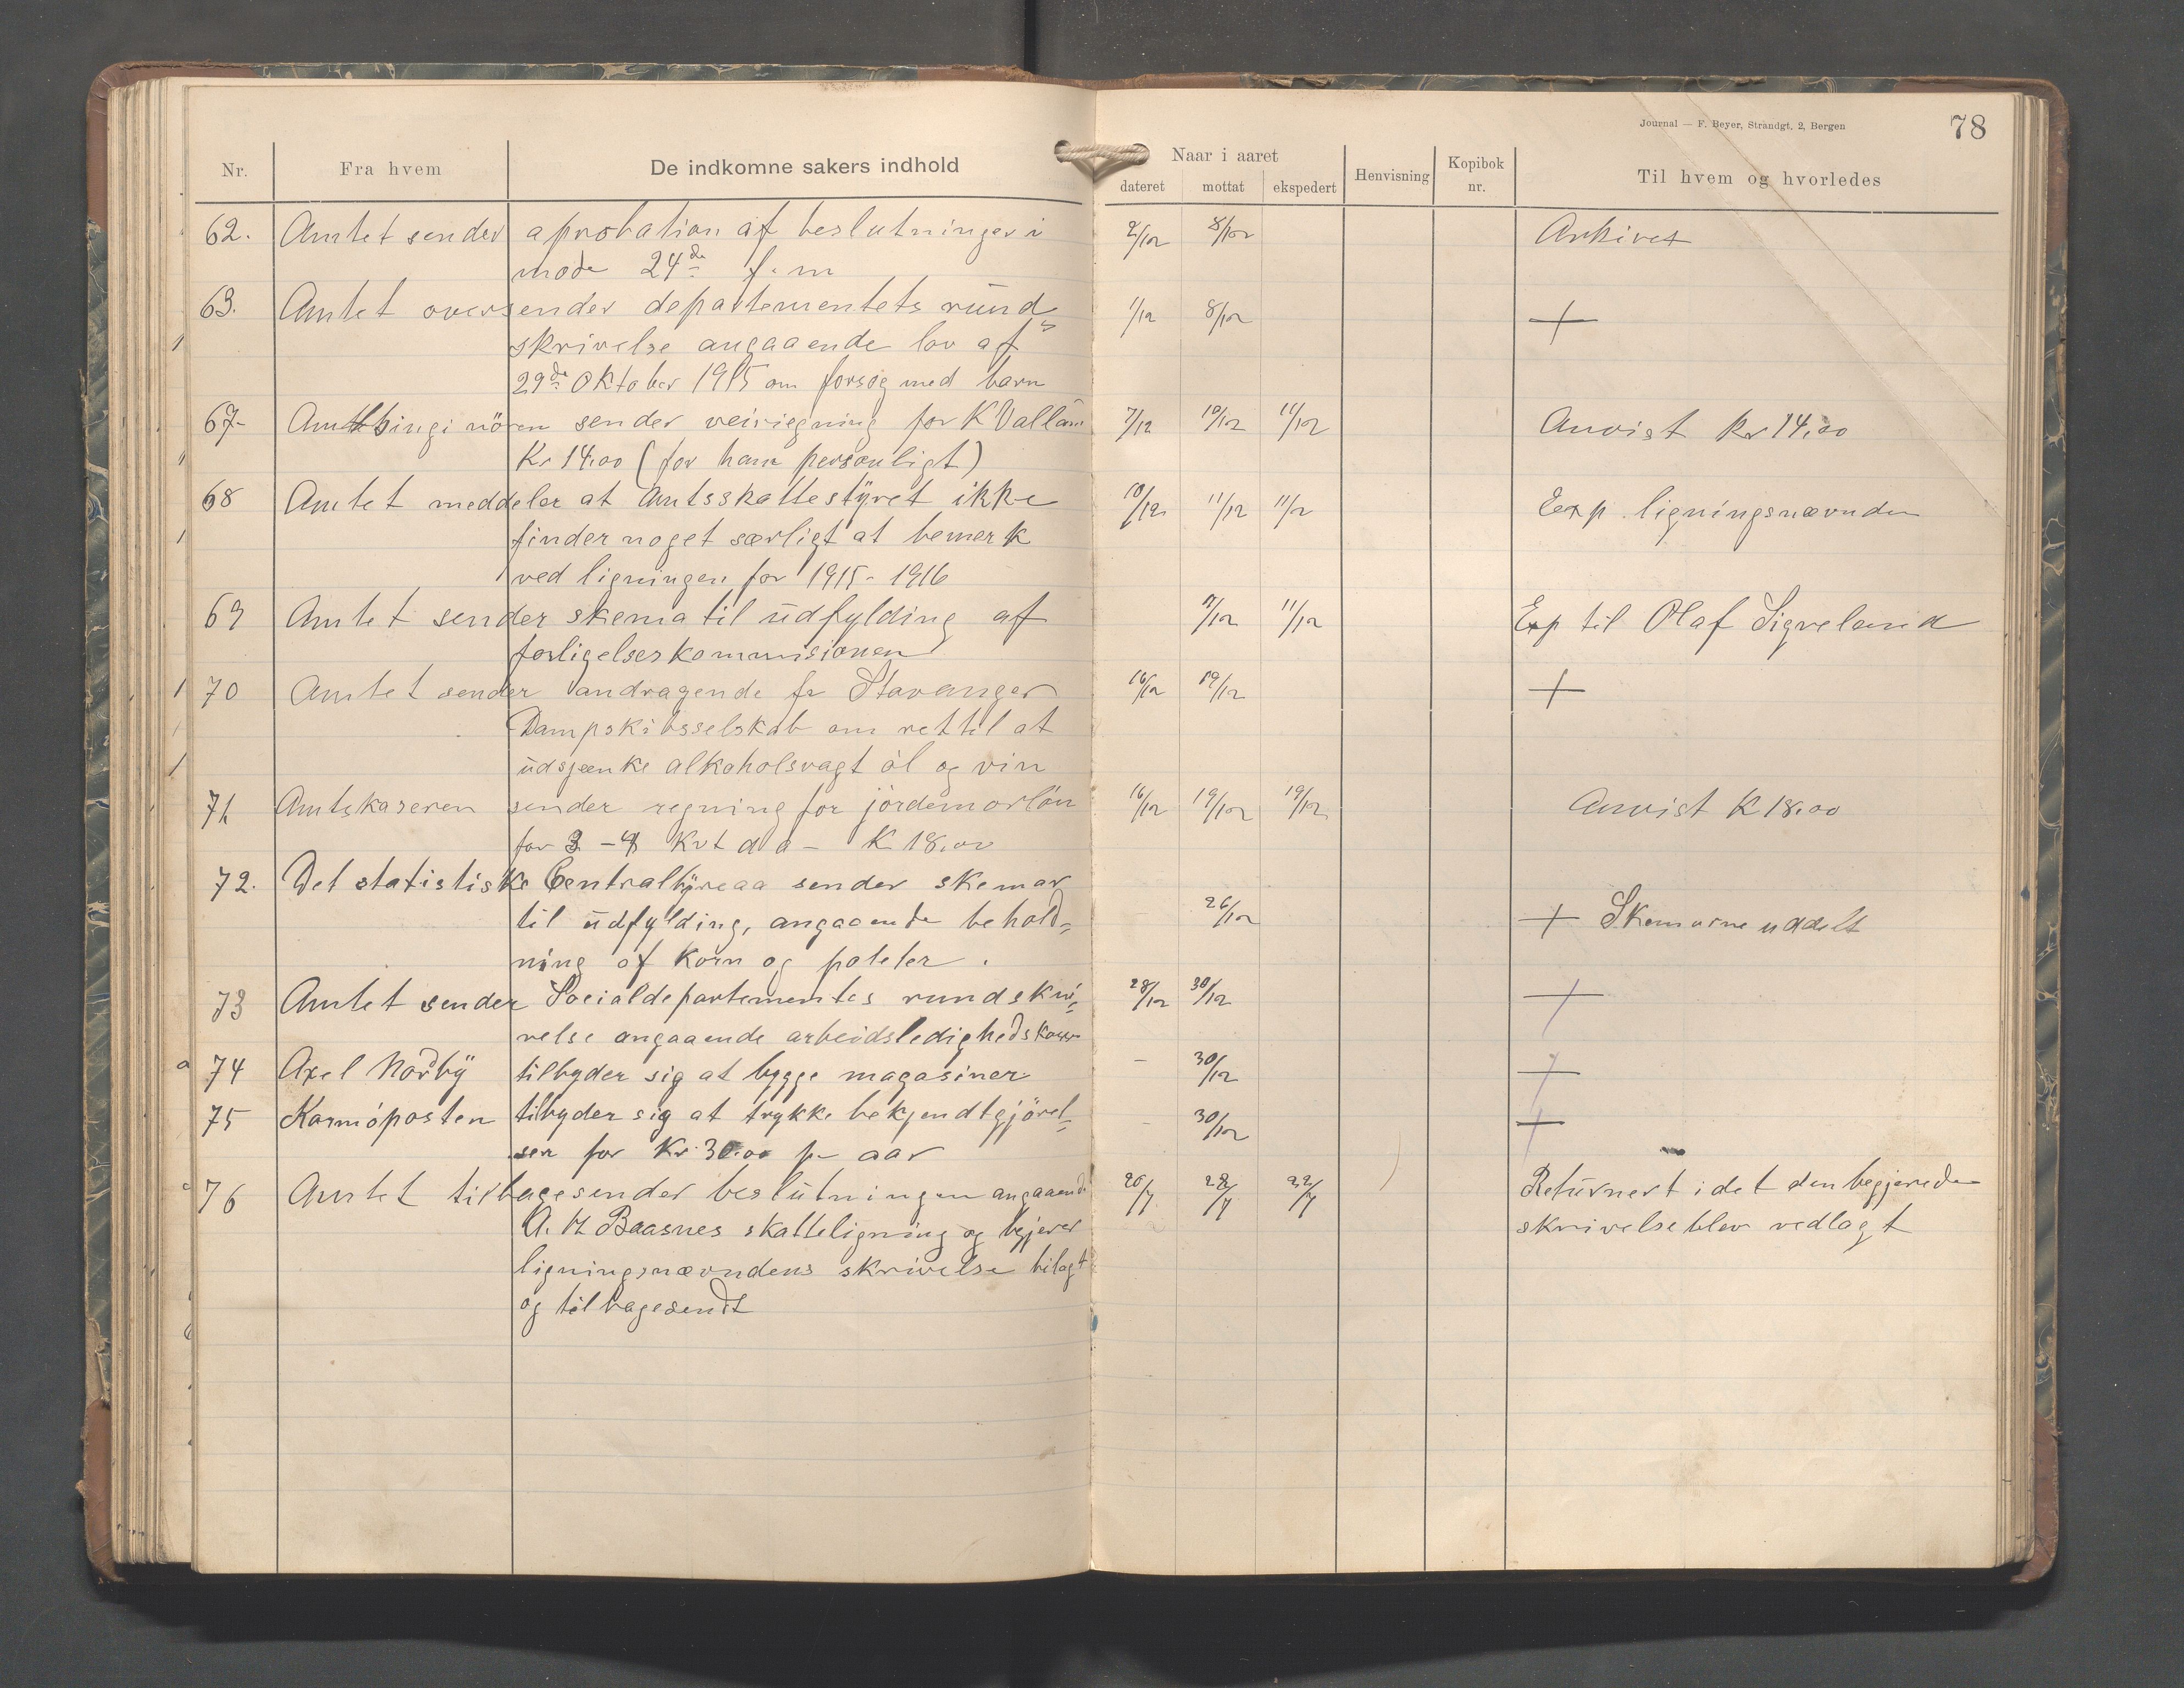 Journal — F. Beyer, Strandgt. 2, Bergen
78
Nr. Fra hvem De indkomne sakers indhold Naar i aaret dateret mottat ekspedert Henvisning Kopibok nr. Til hvem og hvorledes
62. Amtet sender aprobation af beslutninger i 2/12 8/12 Arkivet
møde 24de f. m
63. Amtet oversender departementets rund= 1/12 8/12 +
skrivelse angaaende lov af
29de Oktober 1915 om forsøg med barn
67- Amtsinginiören sender veiregning for K Vallön 7/12 10/12 11/12 Anvist kr 14.00
Kr 14.00 (for ham personligt)
68 Amtet meddeler at Amtsskattestyret ikke 10/12 11/12 11/12 Exp. ligningsnævnden
finder noget særligt at bemerk
ved ligningen for 1915-1916
69 Amtet sender skema til udfylding af 11/12 Exp til Olaf Sigveland
forligelseskommisionen
70 Amtet sender andragende fr Stavanger 16/12 19/12 +
Dampskibsselskab om ret til at
udskjenke alkoholsvagt öl og vin
71 Amtskaseren sender regning for jordemorlön 16/12 19/12 19/12 Anvist K 18.00
for 3 - 4 Kvt d a - K 18.00
72. Det statistiske Centralbyreaa sender skemar
til udfylding, angaaende behold= 26/12 + Skemarne uddelt
ning af Korn og poteter.
73 Amtet sender Socialdepartementes rundskri= 28/12 30/12 +
velse angaaende arbeidsledighedskasser
74 Axel Nordby tilbyder sig at bygge magasiner - 30/12 +
75 Karmöposten tilbyder sig at trykke bekjendtgjörel= - 30/12 +
ser for Kr. 30.00 pr aar
76 Amtet tilbagesender beslutningen angaaende 20/7 22/7 Returnert idet den begjerede
A. Baasnes skatteligning og begjerer skrivelse blev vedlagt
ligningsnævndens skrivelse bilagt
og tilbagesendt